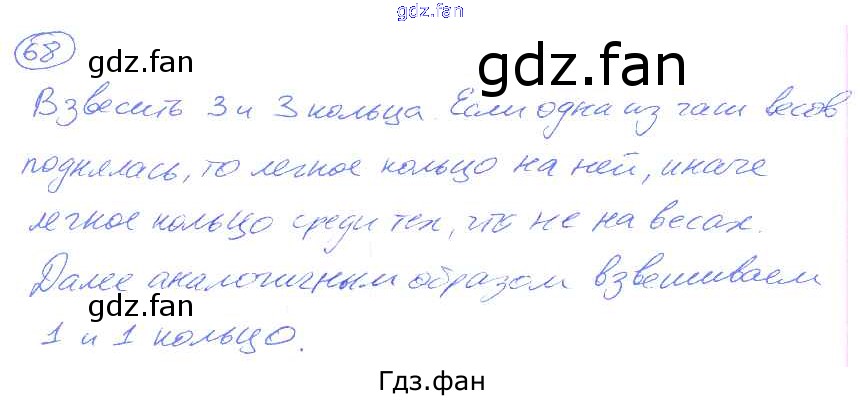 gdz.fan
68
gdz.fan
gdz.fan
Взвесить 3 и 3 кольца. Если одна из чаш весов
поднялась, то легкое кольцо на ней, иначе
легкое кольцо среди тех, что не на весах.
Далее аналогичным образом взвешиваем
gdz.fan
1 и 1 кольцо.
Гдз.фан